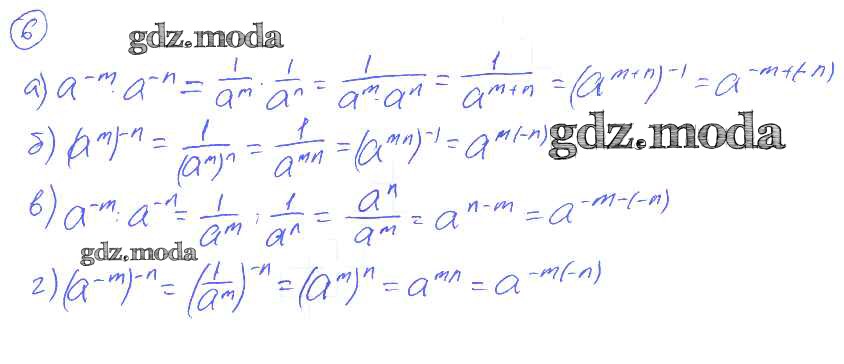 6
gdz.moda
а) a⁻ᵐ · a⁻ⁿ = 1/aᵐ · 1/aⁿ = 1/(aᵐ · aⁿ) = 1/aᵐ⁺ⁿ = (aᵐ⁺ⁿ)⁻¹ = a⁻ᵐ⁺⁽⁻ⁿ⁾
б) (aᵐ)⁻ⁿ = 1/(aᵐ)ⁿ = 1/aᵐⁿ = (aᵐⁿ)⁻¹ = aᵐ⁽⁻ⁿ⁾ gdz.moda
в) a⁻ᵐ : a⁻ⁿ = 1/aᵐ : 1/aⁿ = aⁿ/aᵐ = aⁿ⁻ᵐ = a⁻ᵐ⁻⁽⁻ⁿ⁾
gdz.moda
г) (a⁻ᵐ)⁻ⁿ = (1/aᵐ)⁻ⁿ = (aᵐ)ⁿ = aᵐⁿ = a⁻ᵐ⁽⁻ⁿ⁾